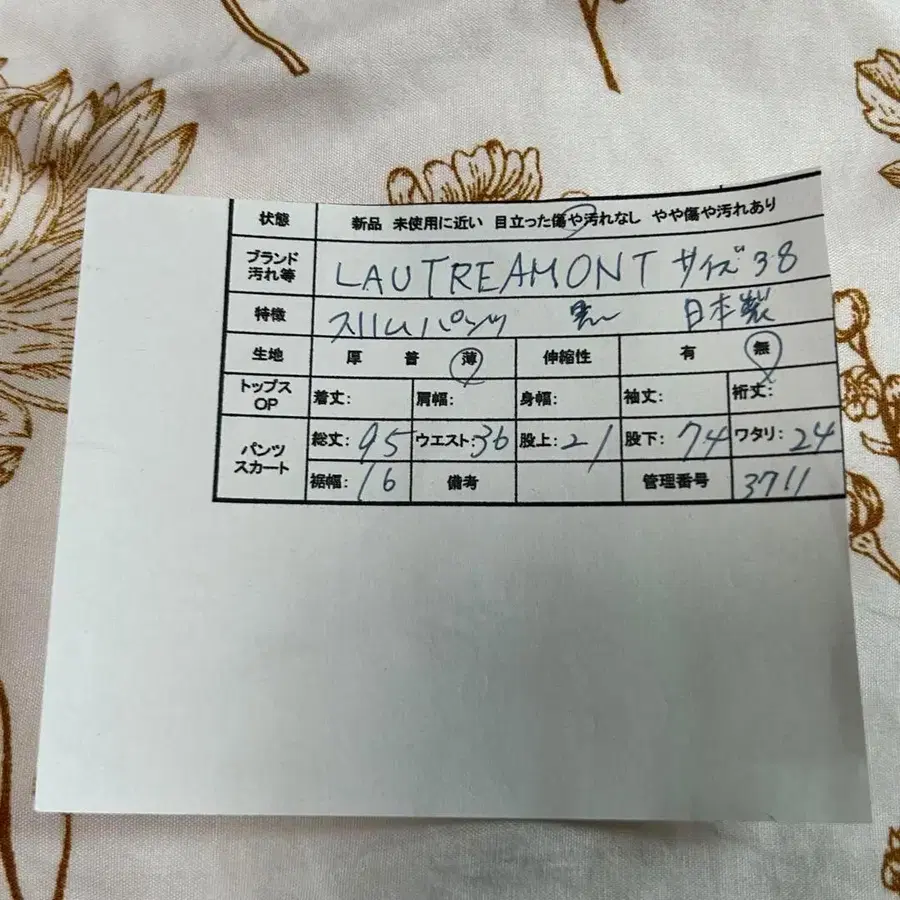 状態 新品 未使用に近い 目立った傷や汚れなし やや傷や汚れあり
ブランド 汚れ等 LAUTREAMONT サイズ38
特徴 スリムパンツ 黒 日本製
生地 厚 普 薄 伸縮性 有 無
トップス OP 着丈: 肩幅: 身幅: 袖丈: 裄丈:
パンツ スカート 総丈:95 ウエスト:36 股上:21 股下:74 ワタリ:24
裾幅:16 備考 管理番号 3711